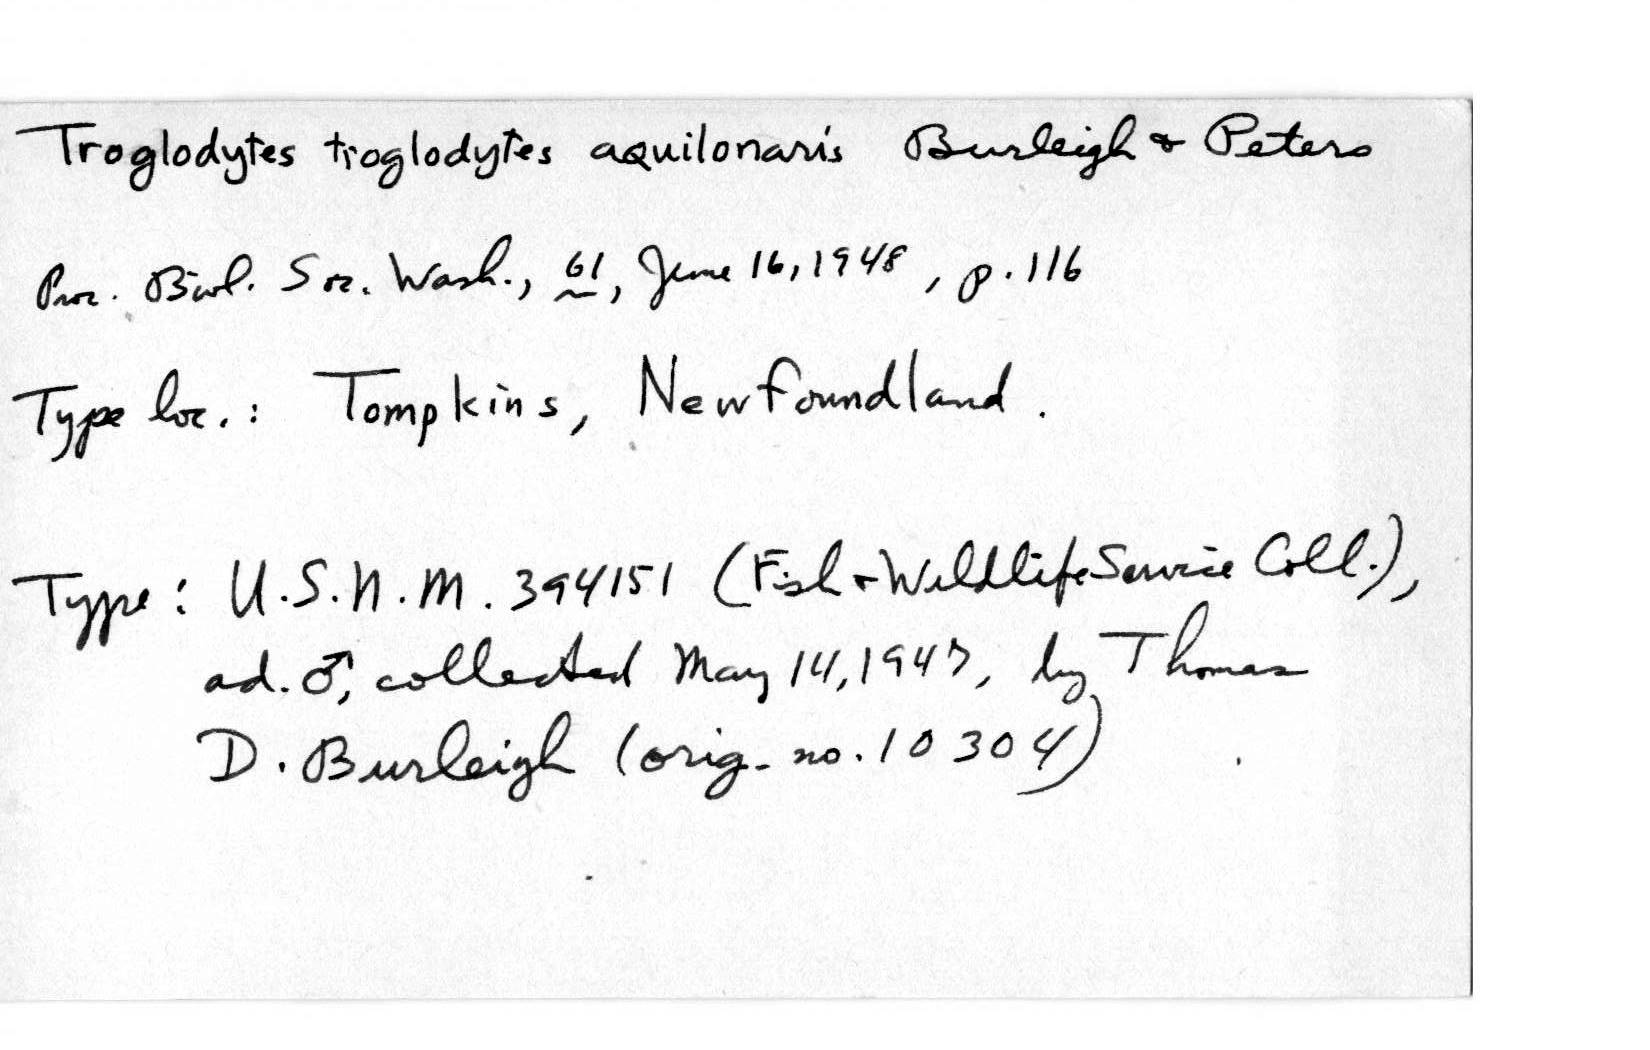 Troglodytes troglodytes aquilonaris Burleigh & Peters
Proc. Biol. Soc. Wash., 61, June 16, 1948, p. 116
Type loc.: Tompkins, Newfoundland.
Type: U.S.N.M. 394151 (Fish & Wildlife Service Coll.),
ad. ♂, collected May 14, 1947, by Thomas
D. Burleigh (orig. no. 10304)